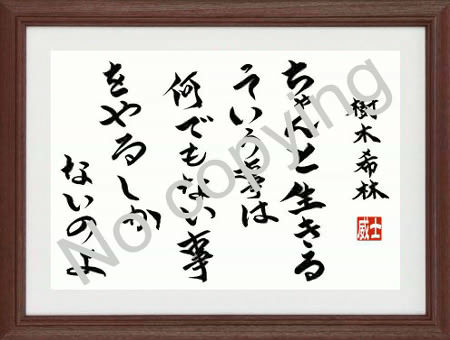 樹木希林
士威
ちゃんと生きる
そういう事は
何でもない事
をやるしか
ないのよ
No copying